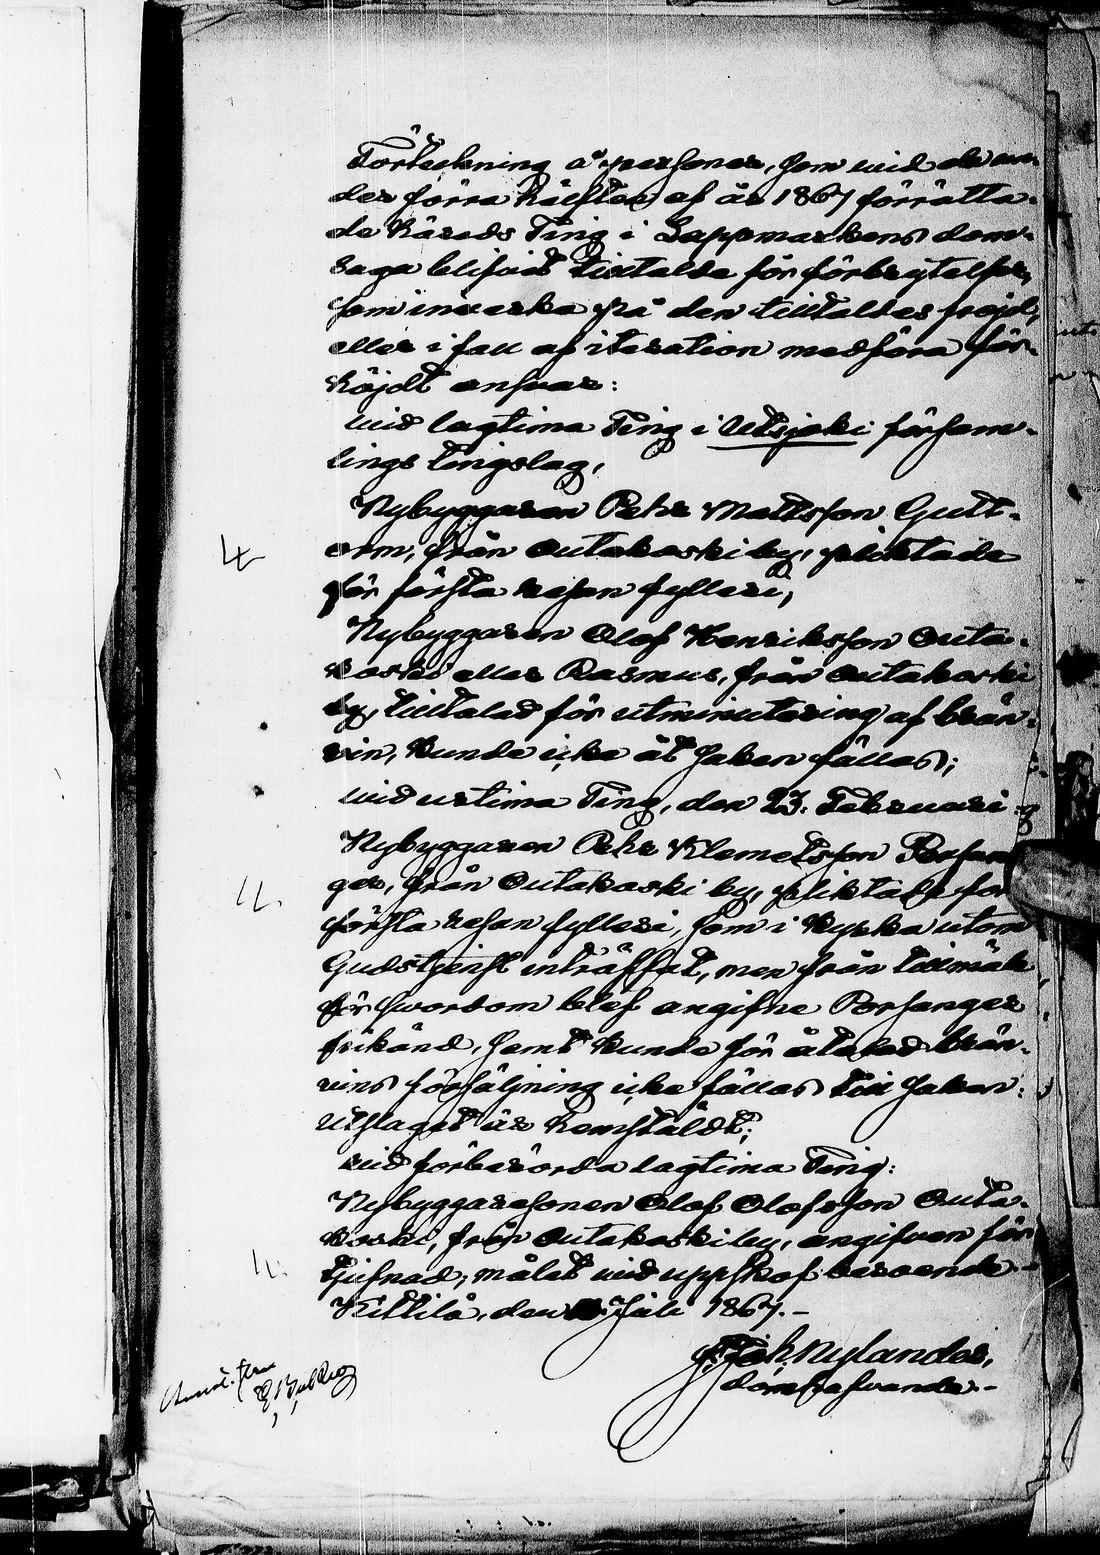 Förteckning å personer, som wid de un-
der förra hälften af år 1867 förrätta-
de härads Ting i Lappmarkens dom-
saga blifvit tilltalda för förbrytelser,
som inverka på den tilltaldes frejd,
eller i fall af iteration medföra för-
höjdt ansvar:
wid lagtima Ting i Utsjoki försam-
lings tingslag,
Nybyggaren Pehr Mattsson Gutt-
orm, från Outakoski by, pliktade
för första resan fylleri;
Nybyggaren Olof Henriksson Outa-
koski eller Rasmus, från Outakoski
by, tilltalad för utminutering af brän-
vin, kunde icke åt saken fällas;
wid urtima Ting, den 23. Februari
Nybyggaren Pehr Klemetsson Porsan-
ger, från Outakoski by, pliktade för
första resan fylleri, som i kyrka utom
Gudstjenst inträffat, men från tillmäle
för swordom blef angifne Porsanger
frikänd, samt kunde för åtalad brän-
vins försäljning icke fällas till saken:
Utslaget är hemstäldt;
wid förberörda lagtima Ting:
Nybyggaresonen Olof Olofsson Outa-
koski, från Outakoski by, angifven för
tjufnad; målet wid uppskof beroende.-
Kittilä, den Juli 1867.-
Joh Nylander,
domhafvande.-